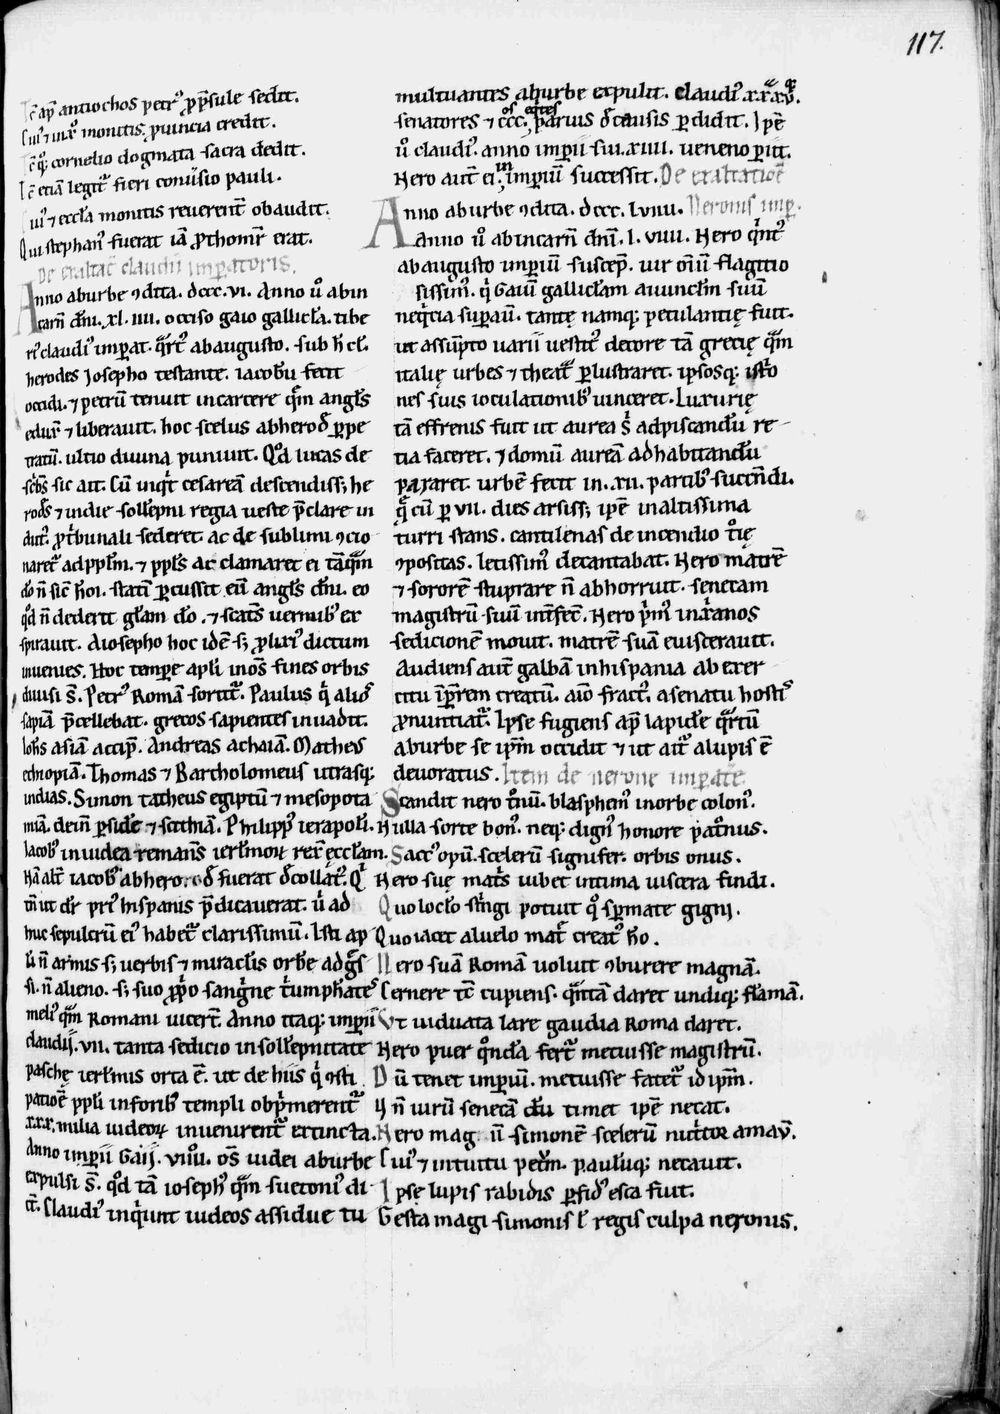 117.
Tc̄ ap̄ antiochos petr᷒ p̱p̄sule sedit.
Cui᷒ ⁊ uxor᷒ monitis, puincia credit.
Tc̄ qͦ; cornelio dogmata sacra dedit.
Tc̄ etiā legit᷑ fieri conũsio pauli.
Cui᷒ ⁊ eccl̄a monitis reuerent̄ obaudit.
Qui stephan᷒ fuerat iā pthomr̄ erat.
De exaltac̄ claudii imperatoris.
Anno ab urbe ꝯdita. dccc. vi. Anno ů ab in
carn̄ dn̄i. xl. iiii. occiso gaio gallicl̄a. tibe
ri᷒ claudi᷒ impat. qͣrt᷒ ab augusto. sub h̄ cl᷒.
herodes iosepho testante. iacobū fecit
occidi. ⁊ petrū tenuit in carcere qͣm angl᷒s
edux̄ ⁊ liberauit. hoc scelus ab herod̄ ꝑpe
tratū. ultio diuina puniuit. Qͦd lucas de
sc̄bēs sic ait. Cū inqͥt cesareā descendiss; he
rodes ⁊ in die sollēpni regia ueste p̄clare in
dut᷒. ptͥbunali sederet. ac de sublimi ꝯcio
naret᷑ ad ppl̄m. ⁊ ppl᷒s ac clamaret ei tāqͣm
do n̄ sic̄ hōi. statī pcussit eū angl᷒s dn̄i. eo
qͦd n̄ dederit gl̄am do. ⁊ scatēs uermib᷒ ex
spirauit. A iosepho hoc idē s; plurͥ᷒ dictum
inuenies. Hoc tempe apl̄i in oēs fines orbis
diuisi s̄. Petr᷒ Romā sortit᷑. Paulus qͥ alios
sapiā p̄cellebat. grecos sapientes inuadit.
Ioh̄s asiā accip̄. Andreas achaiā. Matheus
ethiopiā. Thomas ⁊ Bartholomeus utrasq;
indias. Simon tatheus egiptū ⁊ mesopota
miā. dein̄ pside ⁊ scithiā. Philipp᷒ ierapoli.
Iacob᷒ in iudea remanēs ierlimoꝝ rex̄ ęccl̄am.
Hā alt̄ iacob᷒ ab hero. od̄ fuerat d̄collat᷒. Qͥ
tn̄ ut dr̄ pri᷒ hispanis p̄dicauerat. ů ad
huc sepulcrū ei᷒ habet᷑ clarissimū. Isti ap
l̄i n̄ armis s; uerbis ⁊ miraclis orbē adgͣs
si. n̄ alieno. s; suo pͥo sangͥne tͥumphātes
meli᷒ qͣm Romani uicert̄. Anno itaq; impii
claudii. vii. tanta sedicio in sollēpnitate
paschę ierl̄mis orta ē. ut de hiis qͥ ꝯsti
patioē ppl̄i in forib᷒ templi obpͥmerent᷑
xxx. milia iudeoꝝ inuenirent᷑ extincta.
Anno impii Gaii. viiii. oēs iudei ab urbe
expulsi s̄. qͦd tā ioseph᷒ qͣm suetoni᷒ di
ct̄. Claudi᷒ inqͥunt iudeos assidue tu
multuantes ab urbe expulit. Claudi᷒ xxxv.
senatores ⁊ ccc. eqͥtes paruis d̄ causis pdidit. Ipē
ů claudi᷒. anno impii sui. xiiii. ueneno piit.
Nero aut̄ ei᷒ in impiū successit. De exaltatioē
Anno ab urbe ꝯdita. dccc. lviiii. Neronis imp̄.
Anno ů ab incarn̄ dn̄i. l. viiii. Nero qͥnt᷒
ab augusto impiū suscep̄. uir oīū flagitio
sissim᷒. qͥ Gaiū gallicl̄am auunclm̄ suū
neqͥcia supauī. tantę namq; petulantię fuit.
ut assūpto uarii uestit᷒ decore tā grecię qͣm
italię urbes ⁊ theatͣ plustraret. ipsosq; istͥo
nes suis ioculationib᷒ uinceret. Luxurię
tā effrenis fuit ut aurea sͥ adpiscandū re
tia faceret. ⁊ domū aureā ad habitandū
pararet. urbē fecit in. xii. partib᷒ succn̄di.
qͣ cū p vii. dies arsiss; ipē in altissima
turri stans. cantilenas de incendio tͦię
ꝯpositas. letissim᷒ decantabat. Nero matrē
⁊ sororē stuprare n̄ abhorruit. senecam
magistrū suū int̄fec̄. Nero pͥm᷒ in xͥanos
sedicionē mouit. matrē suā euiscerauit.
Audiens aut̄ galbā in hispania ab exer
citu ipr̄em creatū. aīo fract᷒. a senatu hostis
pnuntiat᷑. Ipse fugiens ap̄ lapidē qͣrtū
ab urbe se ipm̄ occidit ⁊ ut ait᷑ a lupis ē
deuoratus. Item de nerone imperatē.
Scandit nero tͦnū. blasphem᷒ in orbe colon᷒.
Nulla sorte bon᷒. neq; dign᷒ honore patͦnus.
Sacc᷒ opū. scelerū signifer. orbis onus.
Nero suę matͥs iubet intima uiscera findi.
Quo loclo stͥngi potuit qͦ spmate gigni.
Quo iacet aluelo matͥ creat᷒ hō.
Nero suā Romā uoluit ꝯburere magnā.
Cernere tc̄ cupiens. qͣntā daret undiq; flāmā.
Ut uiduata lare gaudia Roma daret.
Nero puer qͦndā fert᷑ metuisse magistrū.
Dū tenet impiū. metuisse fatet᷑ id ipm̄.
Hn̄ uirū senecā dū timet ipē necat.
Nero mag ů simonē scelerū nutͥtor amaū.
Cui᷒ ⁊ intuitu petͬm. paulūq; necauit.
Ipse lupis rabidis pfid᷒ esca fuit.
Gesta magi simonis l̄ regis culpa neronis.